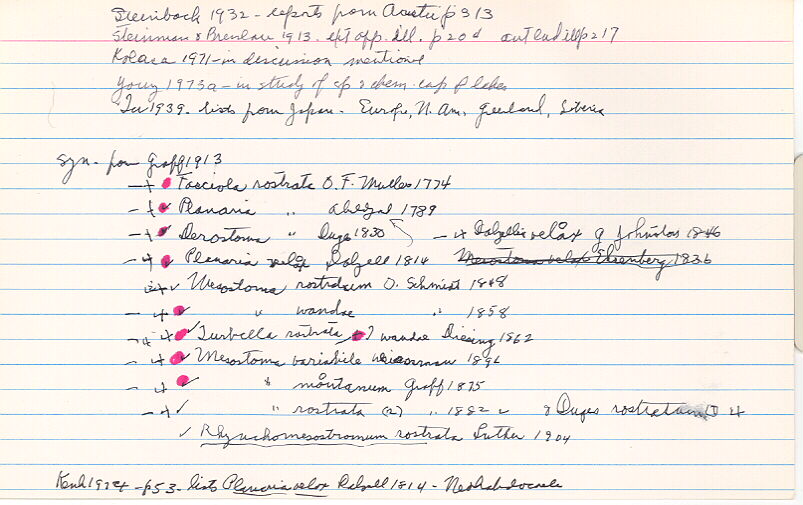 Steinbock 1932 - reports from p 313
Steinmann & Bresslau 1913 - p 204 p 217
1971 - in discussion mentions
Young 1973a - in study of sp & chem. cap of lakes
1939 - lists from Japan - Europe, N. Am, Greenland, Siberia
syn. from Graff 1913
- + Fasciola rostrata O. F. Muller 1774
- + Planaria " 1789
- + Derostoma " Duges 1830 - + velox G. Johnston 1846
- + Planaria velox Dalyell 1814 Mesostoma velox 1836
+ Mesostoma rostratum O. Schmidt 1848
- + " wandae " 1858
- + Turbella rostrata & ? wandae Diesing 1862
- + Mesostoma variabile 1896
- + " montanum Graff 1875
- + " rostrata (2) " 1882 & Duges rostratum +
Rhynchomesostromum rostrata Luther 1904
Kenk 1974 - p53 - lists Planaria velox Dalyell 1814 - Neorhabdocoele